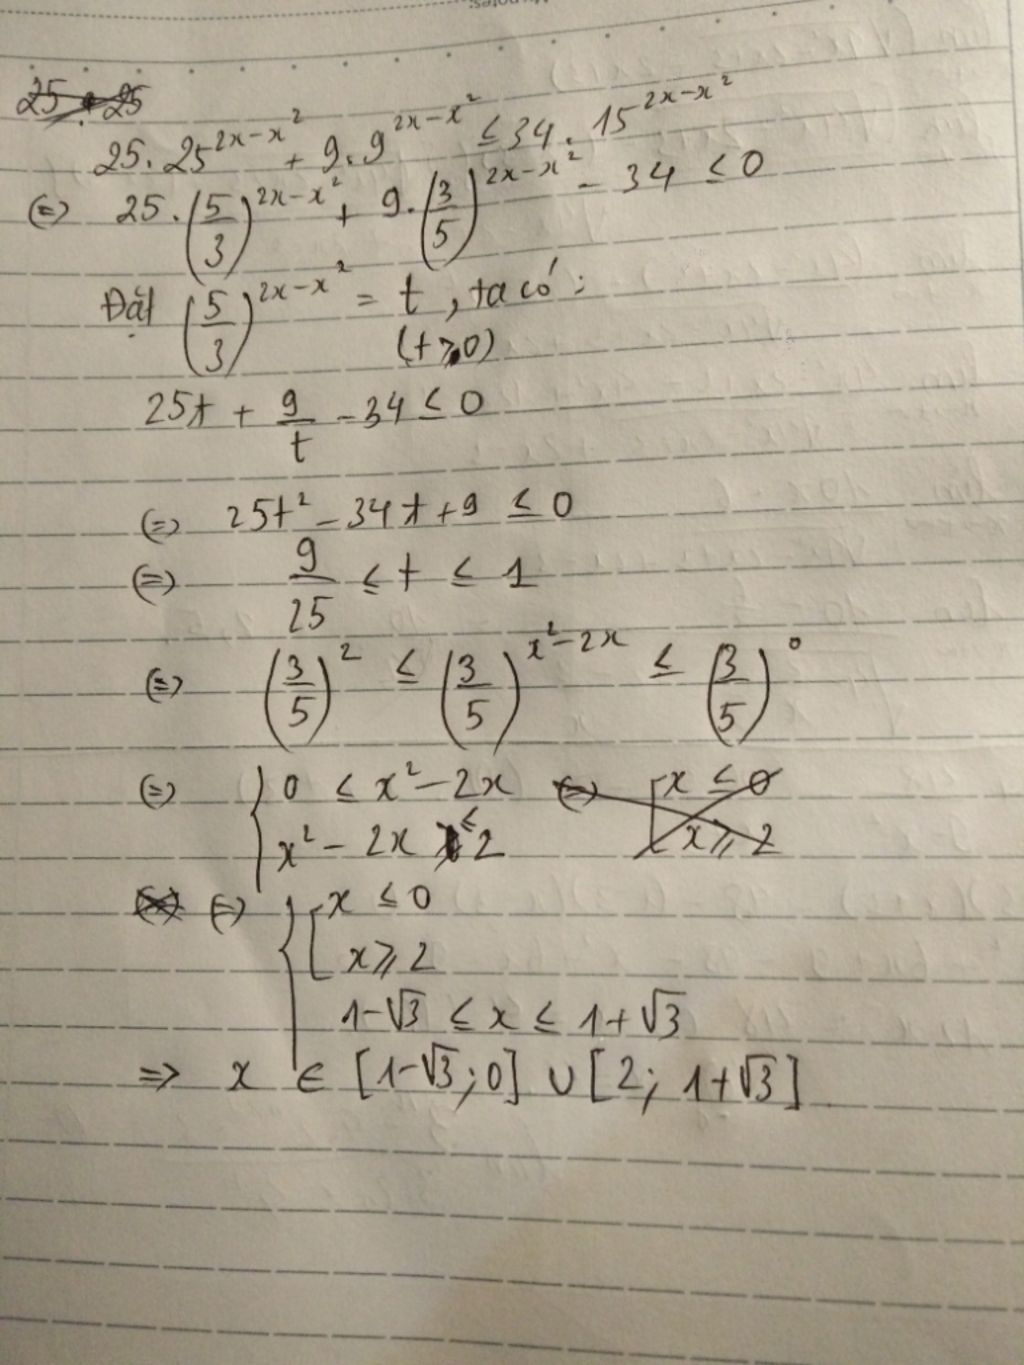 25 . 25
25. 25^{2x-x^2} + 9. 9^{2x-x^2} ≤ 34. 15^{2x-x^2}
(=) 25. (5/3)^{2x-x^2} + 9. (3/5)^{2x-x^2} - 34 ≤ 0
Đặt (5/3)^{2x-x^2} = t, ta có:
(t ≥ 0)
25t + 9/t - 34 ≤ 0
(=) 25t² - 34t + 9 ≤ 0
(=) 9/25 ≤ t ≤ 1
(=) (3/5)^2 ≤ (3/5)^{x^2-2x} ≤ (3/5)^0
(=) { 0 ≤ x² - 2x (=) [ x ≤ 0
x² - 2x ≤ 2 x ≥ 2
(=) { [ x ≤ 0
x ≥ 2
1-√3 ≤ x ≤ 1+√3
=> x ∈ [1-√3; 0] ∪ [2; 1+√3]